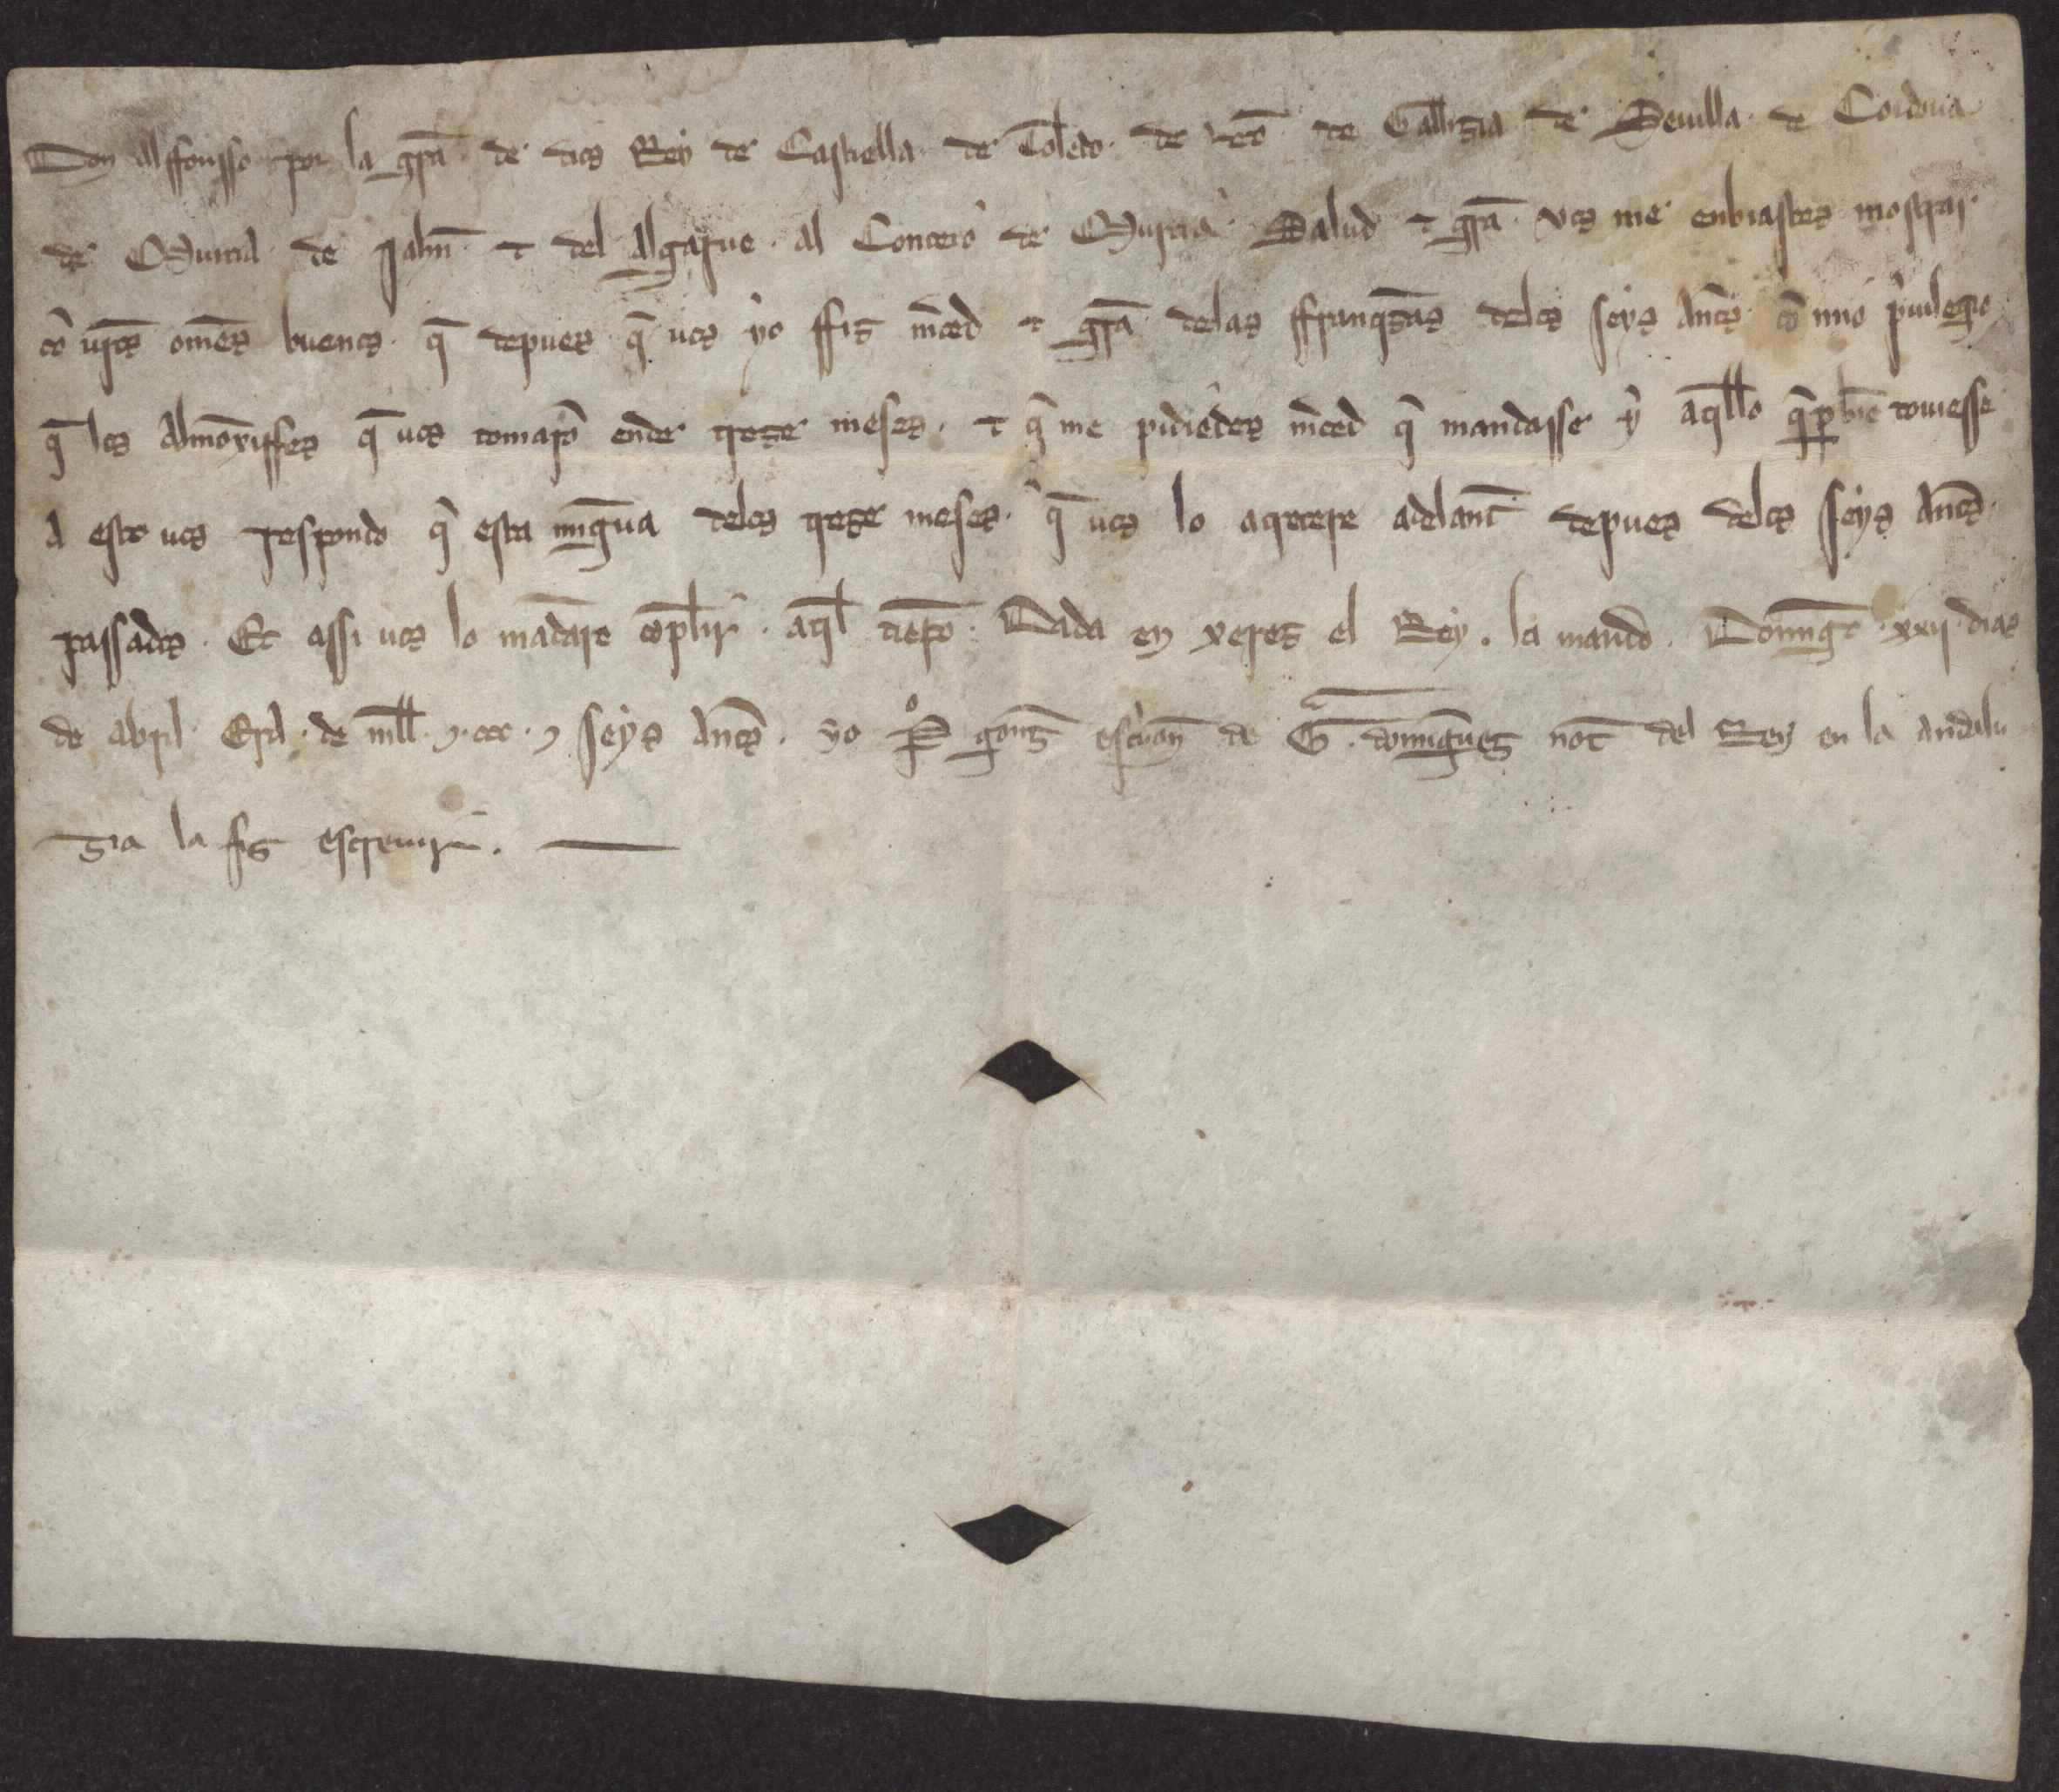 Don Alffonsso por la gr̃a · de dios Rey de Castiella · de Toledo · de Leõ · de Gallizia de Seuilla · de Cordoua
de Murcia · de Jahñ · ⁊ del Algarue · al Conceio de Murcia · Salud ⁊ gr̃a · Vos me enbiastes mostrar
cõ ur̃os omẽs buenos · q̃ depues q̃ uos yo ffiz m̃ced ⁊ gr̃a delas ffranq̃zas delos seys Annos · cõ mio p̃uilegio
q̃ los Almoxriffes q̃ uos tomarõ ende treze meses · ⁊ q̃ me pidiẽdes m̃ced q̃ mandasse y aq̃llo q̃ por biẽ touiesse
A esto uos respondo q̃ esta mĩgua delos treze meses · q̃ uos lo acrecere adelant̃ depues delos seys Annos ·
passados · Et assi uos lo mãdare cõplir · aq̃l tiẽpo · Dada en Xerez el Rey · la mando · Domĩgo · xxij · dias
de abril · Era · de mill · ⁊ · ccc · ⁊ seys Annos · yo P̃º gonç̃ esc̃uan̄ de G̃ · domĩguez not̃ del Rey en la andalu
zia la fiz escreuir ·